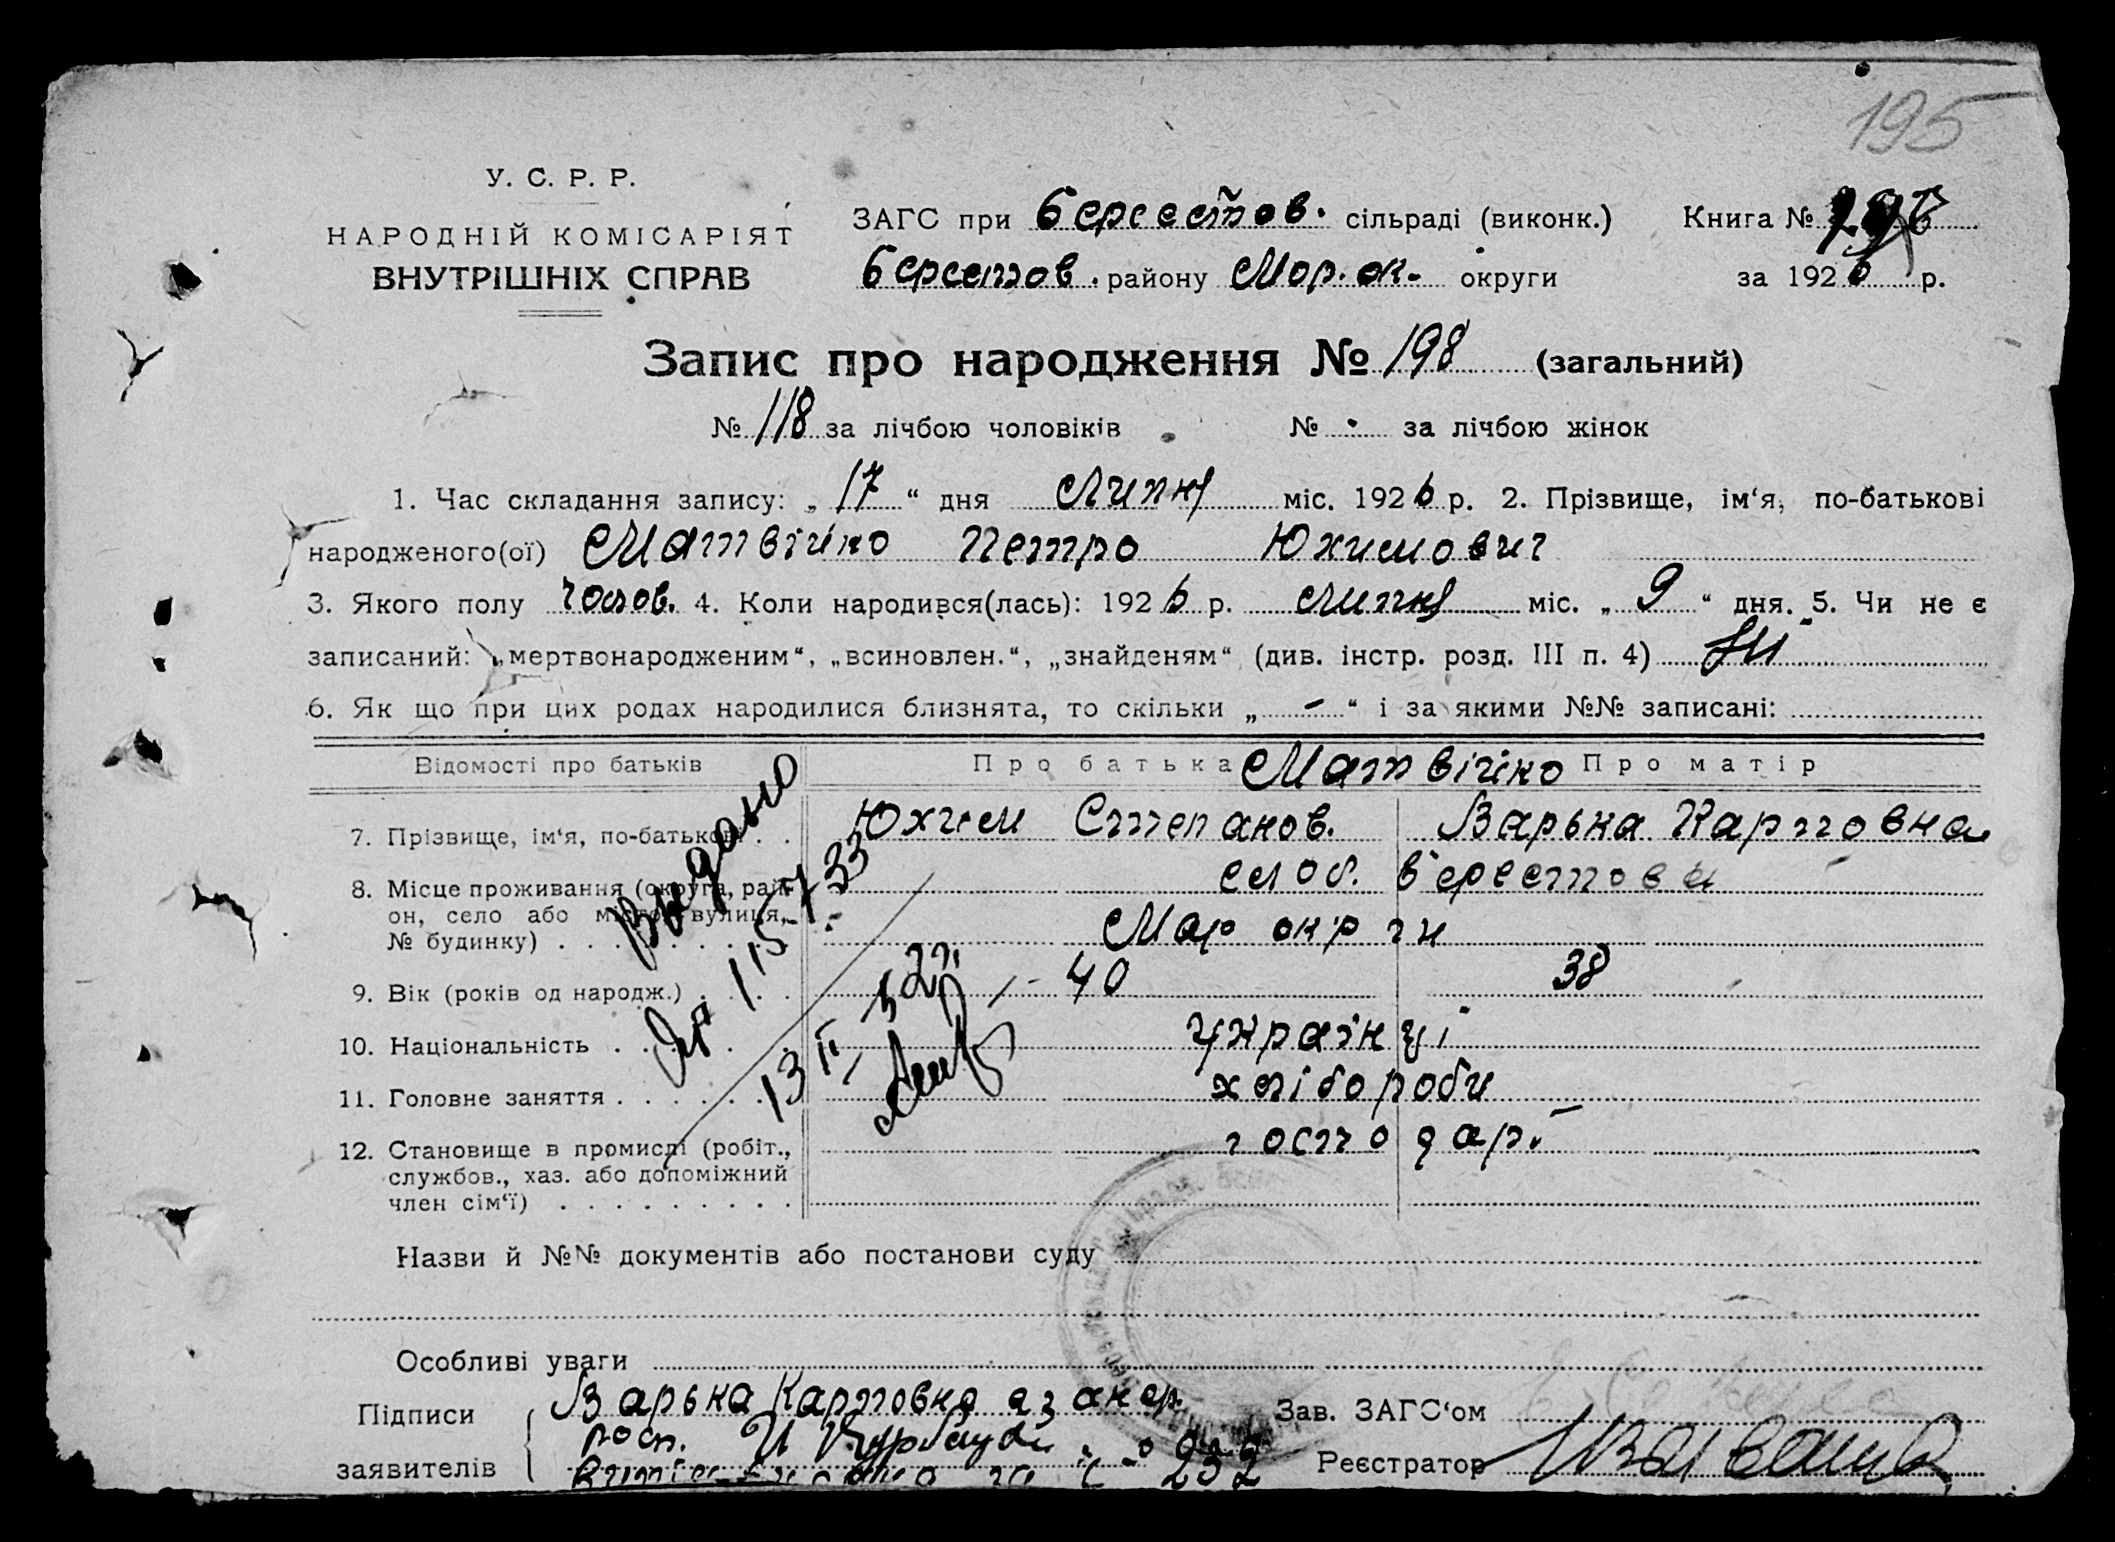 195
У. С. Р. Р.
НАРОДНІЙ КОМІСАРІЯТ
ВНУТРІШНІХ СПРАВ
ЗАГС при Берестов. сільраді (виконк.) Книга №
Берестов. району Мар. ок. округи за 1926 р.
Запис про народження № 198 (загальний)
№ 118 за лічбою чоловіків № за лічбою жінок
1. Час складання запису: „ 17 “ дня Липня міс. 1926 р. 2. Прізвище, ім‘я, по-батькові
народженого(ої) Матвійко Петро Юхимович
3. Якого полу чолов. 4. Коли народився(лась): 1926 р. Липня міс. „ 9 “ дня. 5. Чи не є
записаний: „мертвонародженим“, „всиновлен.“, „знайденям“ (див. інстр. розд. III п. 4) Ні
6. Як що при цих родах народилися близнята, то скільки „ - “ і за якими №№ записані:
Відомості про батьків Про батька Матвійко Про матір
7. Прізвище, ім‘я, по-батькові . . Юхим Степанов. Варька Карповна
8. Місце проживання (округа, рай- слоб. Берестова
он, село або місто, вулиця,
№ будинку) . . . . . . . . . Мар окрги
9. Вік (років од народж.) . . . . 40 38
10. Національність . . . . . . українці
11. Головне заняття . . . . . . хлібороби
12. Становище в промислі (робіт., господар.
службов., хаз. або допоміжний
член сім‘ї) . . . . . . . . .
Видано
15/7 33
13 II 32 р.
Назви й №№ документів або постанови суду
Особливі уваги
Підписи Варька Карповна а за непр.
заявителів росп.
232
Зав. ЗАГС‘ом
Реєстратор